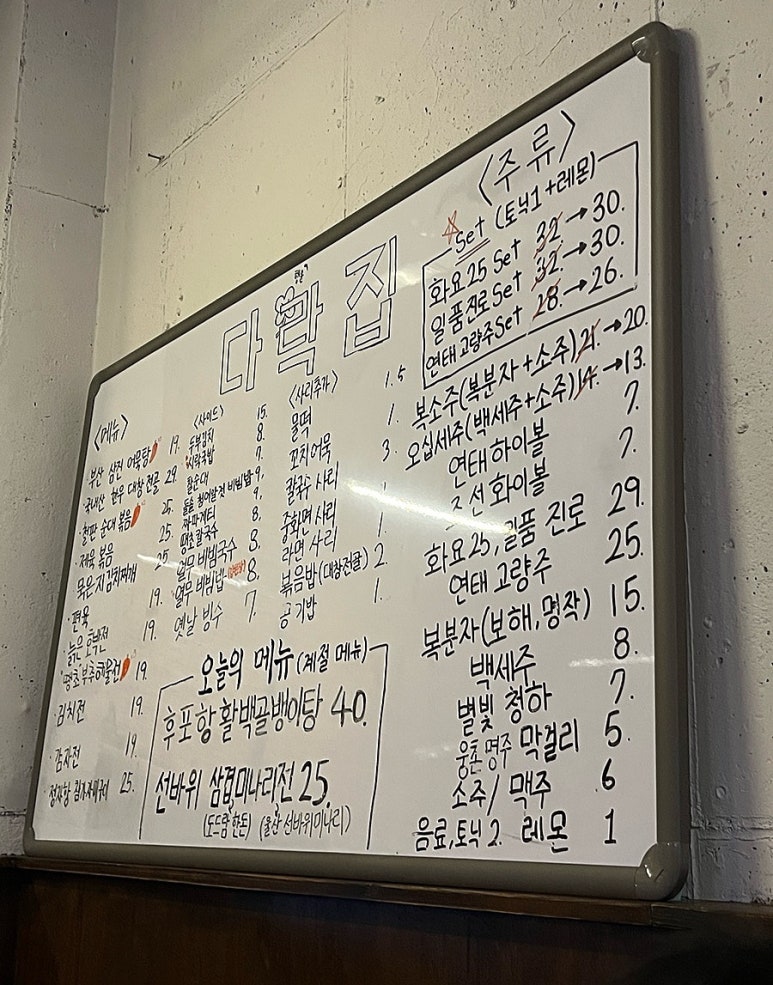 다락집
〈메뉴〉
· 부산 삼진 어묵탕 19.
· 국내산 한우 대창전골 29.
· 철판 순대 볶음 25.
· 제육 볶음 25.
· 묵은지김치찌개 25.
· 편육 19.
· 늙은 호박전 19.
· 땡초부추해물전 19.
· 김치전 19.
· 감자전 19.
25.
〈사이드〉
두부김치 15.
시락국밥 8.
찰순대 7.
돌솥 날치알젓 비빔밥 9.
짜파게티 9.
땡초칼국수 8.
열무 비빔국수 8.
열무 비빔밥 8.
옛날 빙수 7.
〈사리추가〉
물떡 1.5
꼬지어묵 1.
칼국수 사리 3.
중화면 사리 1.
라면 사리 1.
볶음밥(대창전골) 2.
공기밥 1.
오늘의 메뉴 (계절 메뉴)
후포항 활백골뱅이탕 40.
선바위 삼겹미나리전 25.
(도드람한돈) (울산 선바위미나리)
〈주류〉
☆Set (토닉1+레몬)
화요25 Set 32.→30.
일품진로Set 32.→30.
연태고량주Set 28.→26.
복소주(복분자+소주) 21.→20.
오십세주(백세주+소주) 14.→13.
연태 하이볼 7.
조선 화이볼 7.
화요25, 일품 진로 29.
연태 고량주 25.
복분자(보해,명작) 15.
백세주 8.
별빛 청하 7.
웅촌명주 막걸리 5.
소주/맥주 6
음료,토닉 2. 레몬 1